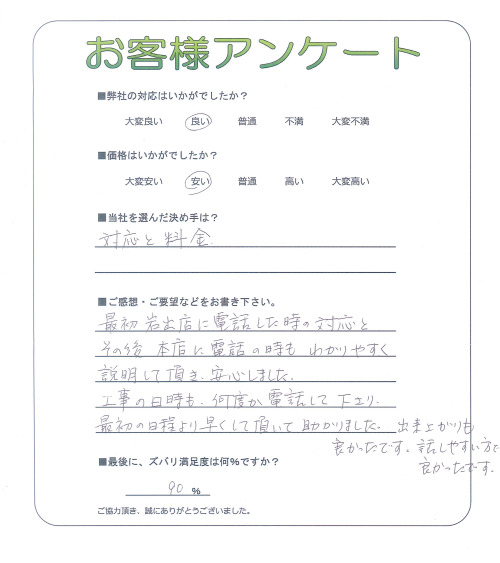 お客様アンケート
■弊社の対応はいかがでしたか？
大変良い 良い 普通 不満 大変不満
■価格はいかがでしたか？
大変安い 安い 普通 高い 大変高い
■当社を選んだ決め手は？
対応と料金
■ご感想・ご要望などをお書き下さい。
最初岩出店に電話した時の対応と
その後本店に電話の時も わかりやすく
説明して頂き、安心しました。
工事の日時も、何度か電話して下さり、
最初の日程より早くして頂いて助かりました。出来上がりも
良かったです。話しやすい方で
良かったです。
■最後に、ズバリ満足度は何%ですか？
90 %
ご協力頂き、誠にありがとうございました。